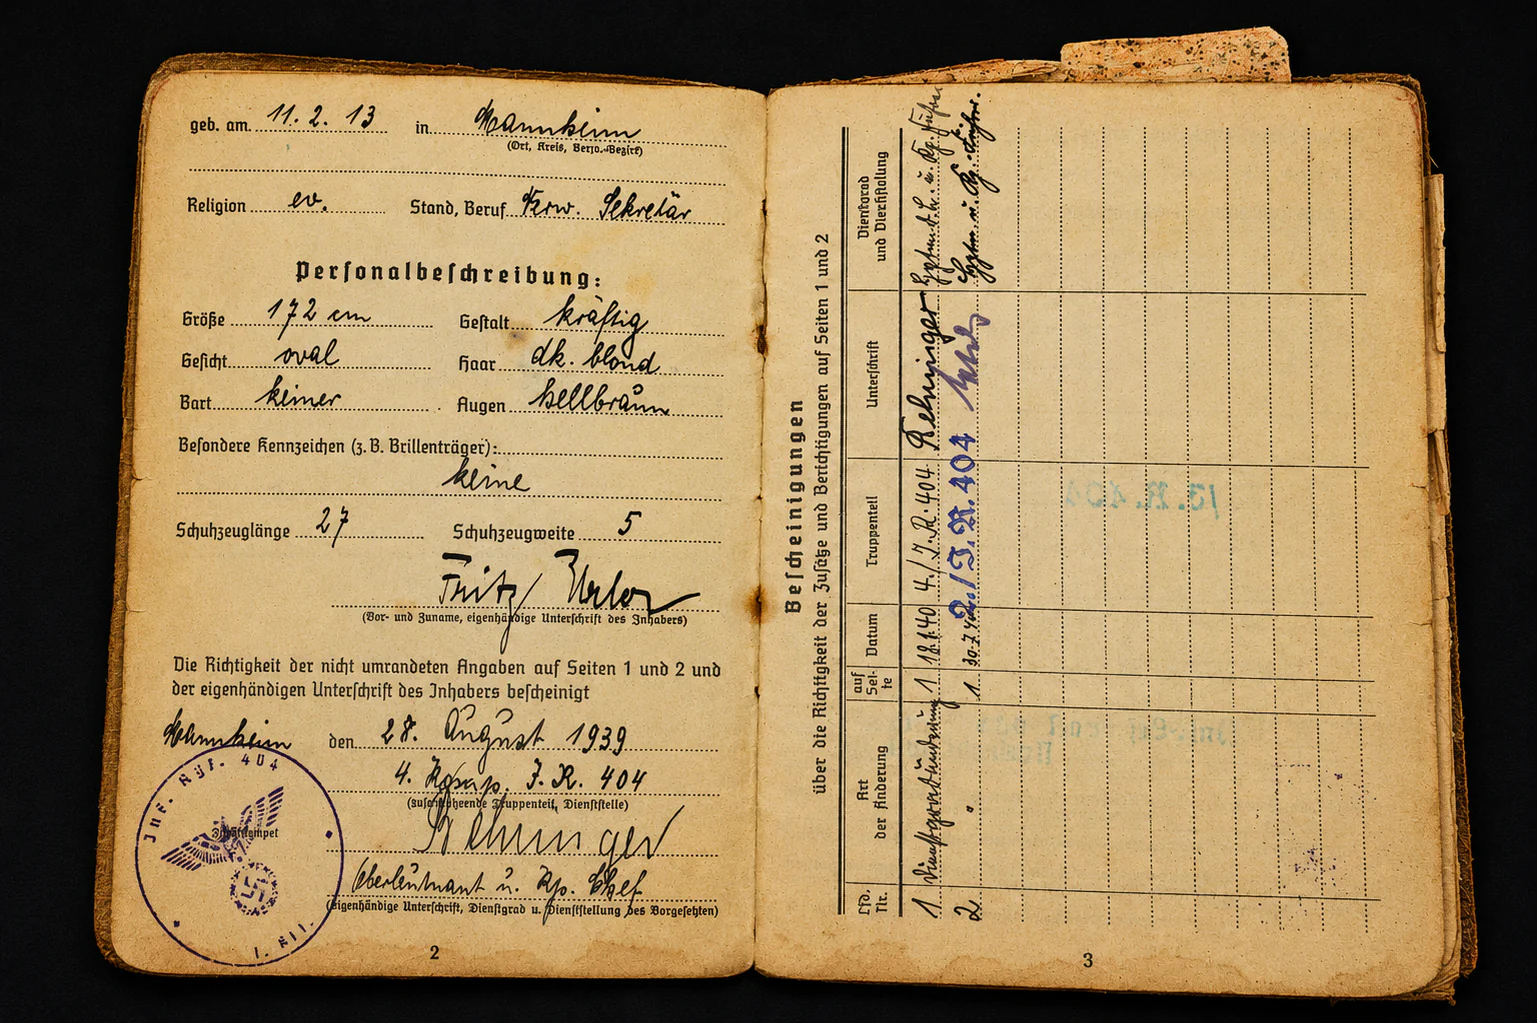 geb. am 11. 2. 13 in Mannheim
(Ort, Kreis, Verw.-Bezirk)
Religion ev. Stand, Beruf Sekretär
Personalbeschreibung:
Größe 172 cm Gestalt kräftig
Gesicht oval Haar dk. blond
Bart keiner Augen hellbraun
Besondere Kennzeichen (z. B. Brillenträger):
keine
Schuhzeuglänge 27 Schuhzeugweite 5
Fritz
(Vor- und Zuname, eigenhändige Unterschrift des Inhabers)
Die Richtigkeit der nicht umrandeten Angaben auf Seiten 1 und 2 und
der eigenhändigen Unterschrift des Inhabers bescheinigt
Mannheim den 28. August 1939
4. Komp. J. R. 404
Truppenteil, Dienststelle)
Rehninger
Oberleutnant u. Kp. Chef
(Eigenhändige Unterschrift, Dienstgrad u. Dienststellung des Vorgesetzten)
Inf. Rgt. 404
2
Bescheinigungen
über die Richtigkeit der Zusätze und Berichtigungen auf Seiten 1 und 2
Lfd. Nr. Art der Änderung auf Seite Datum Truppenteil Unterschrift Dienstgrad und Dienststellung
1 Dienstgradänderung 1 18.1.40 4./J.R. 404 Rehninger
2 " 1 30.7. 2./J.R. 404
3